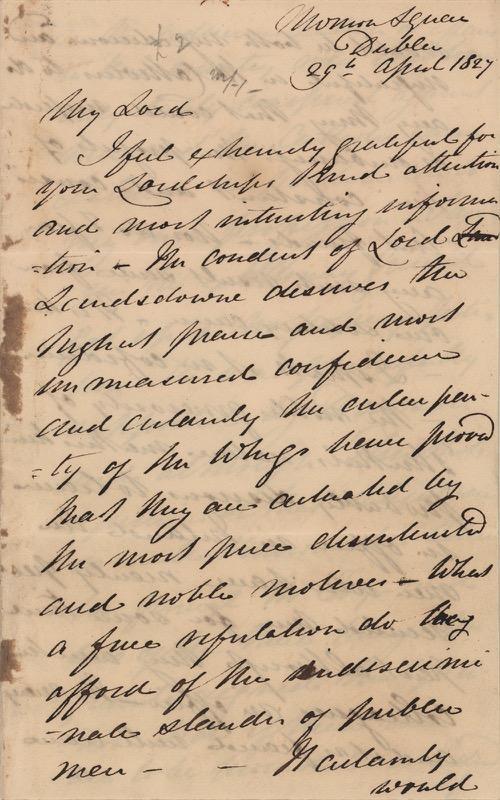 Merrion Square
Dublin
29th April 1827
My Lord
I feel extremely grateful for
your Lordships kind attention
and most interesting informa
-tion - The conduct of Lord
Landsdowne deserves the
highest praise and most
unmeasured confidence
and certainly the entire par-
-ty of the Whigs have proved
that they are actuated by
the most pure disinterested
and noble motives - What
a fine refutation do they
afford of the indiscrimi
-nate slander of public
men - - It certainly
would